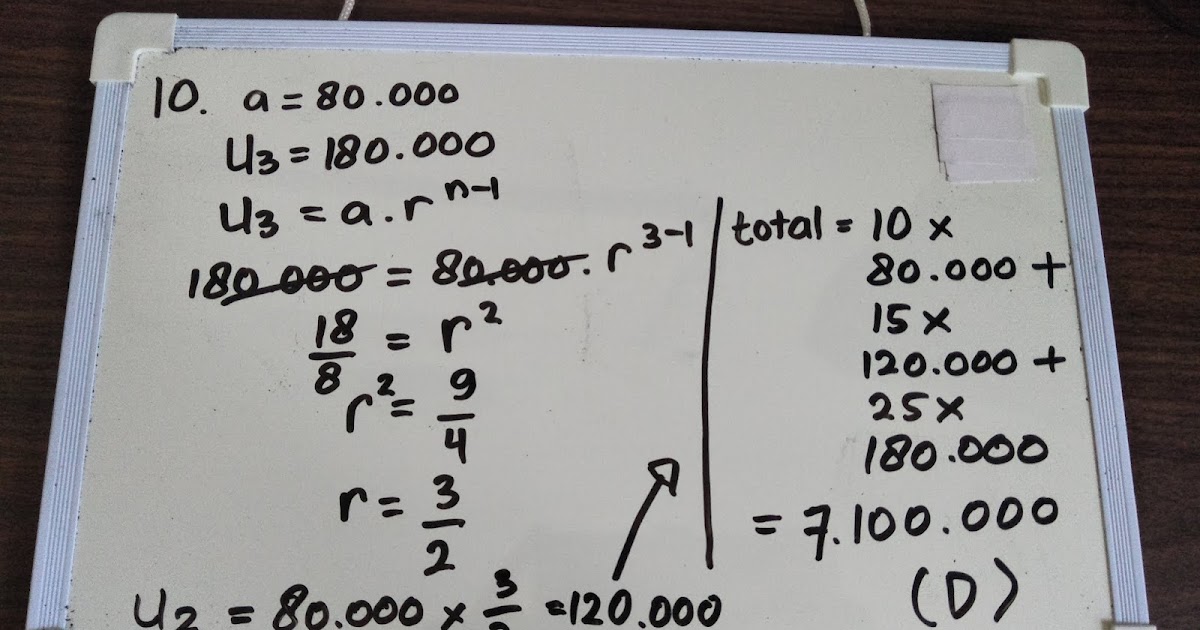 10. a = 80.000
U3 = 180.000
U3 = a.r^n-1
180.000 = 80.000. r^3-1
18/8 = r^2
r^2 = 9/4
r = 3/2
U2 = 80.000 x 3/2 = 120.000
total = 10 x
80.000 +
15 x
120.000 +
25 x
180.000
= 7.100.000
(D)